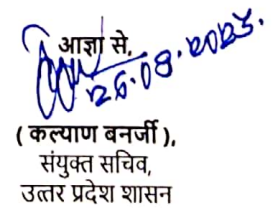 आज्ञा से,
26.08.2025.
( कल्याण बनर्जी ),
संयुक्त सचिव,
उत्तर प्रदेश शासन